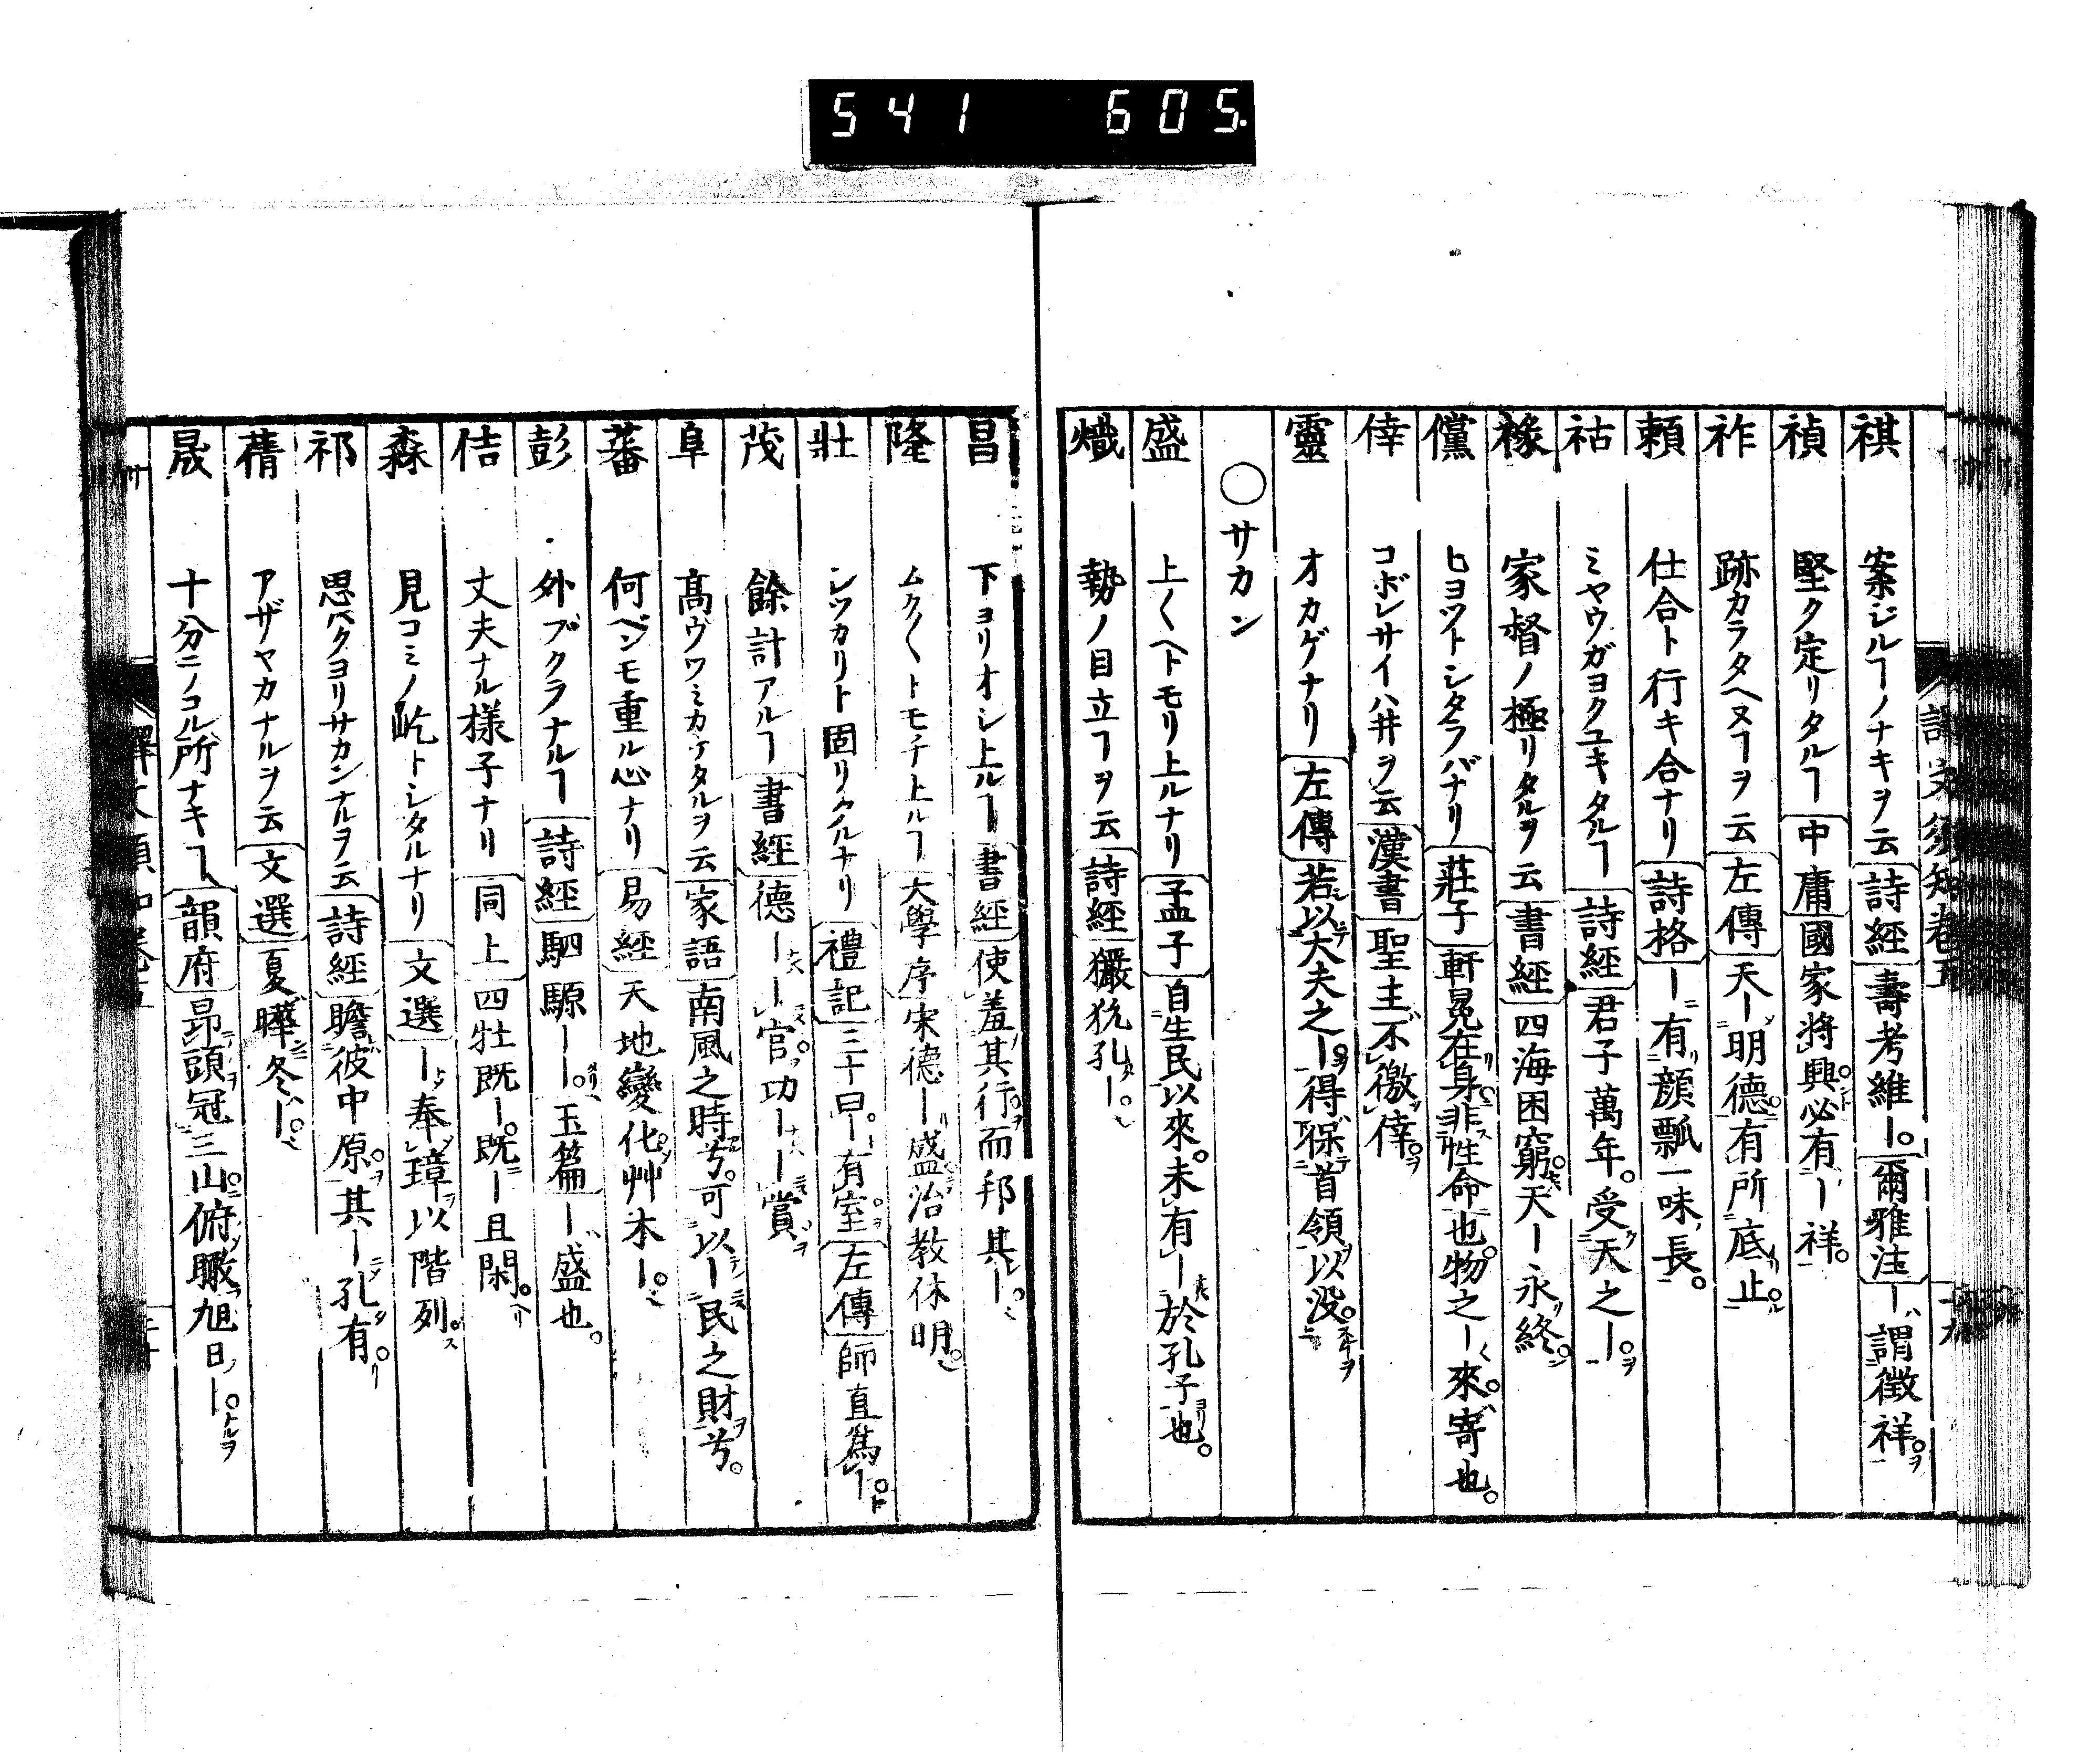 541 605.
祺 案ジルヿノナキヲ云 詩經 壽考維ー。爾雅注 ーハ謂徴祥。ヲ
禎 堅ク定リタルヿ 中庸 國家將興。必有ー祥。
祚 跡カラタヘヌヿヲ云 左傳 天ー明德。有所底止。
頼 仕合ト行キ合ナリ 詩格 ー有顔瓢一味長。
祜 ミヤウガヨクユキタルヿ 詩經 君子萬年。受天之ー。ヲ
祿 家督ノ極リタルヲ云 書經 四海困窮。天ー永終。
儻 ヒヨツトシタラバナリ 莊子 軒冕在身。非性命也。物之ー來。寄也。
倖 コボレサイハ井ヲ云 漢書 聖主不徼倖。ヲ
靈 オカゲナリ 左傳 若以大夫之ー。得保首領以没。
○サカン
盛 上〱ヘトモリ上ルナリ 孟子 自生民以來。未有ー於孔子也。
熾 勢ノ目立ヿヲ云 詩經 玁狁孔ー。
昌 下ヨリオシ上ルヿ 書經 使羞其行。而邦其ー。
隆 ムク〱トモチ上ルヿ 大學序 宋德ー盛治教休明。
壯 シツカリト固リタルナリ 禮記 三十曰ー。有室。左傳 師直爲ー。ト
茂 餘計アルヿ 書經 德ーー官。功ーー賞。
阜 髙ヴワミカケタルヲ云 家語 南風之時兮。可以ー民之財兮。
蕃 何ベンモ重ル心ナリ 易經 天地變化。艸木ー。
彭 外ブクラナルヿ 詩經 駟騵ーー。玉篇 ーハ盛也。
佶 丈夫ナル様子ナリ 同上 四牡既ー。既ー且閑。
森 見コミノ屹トシタルナリ 文選 ー奉璋以階列。
祁 思ベクヨリサカンナルヲ云 詩經 瞻彼中原。其ー孔有。
蒨 アザヤカナルヲ云 文選 夏曄冬ー。
晟 十分ニノコル所ナキヿ 韻府 昂頭冠三山。俯瞰旭日ー。